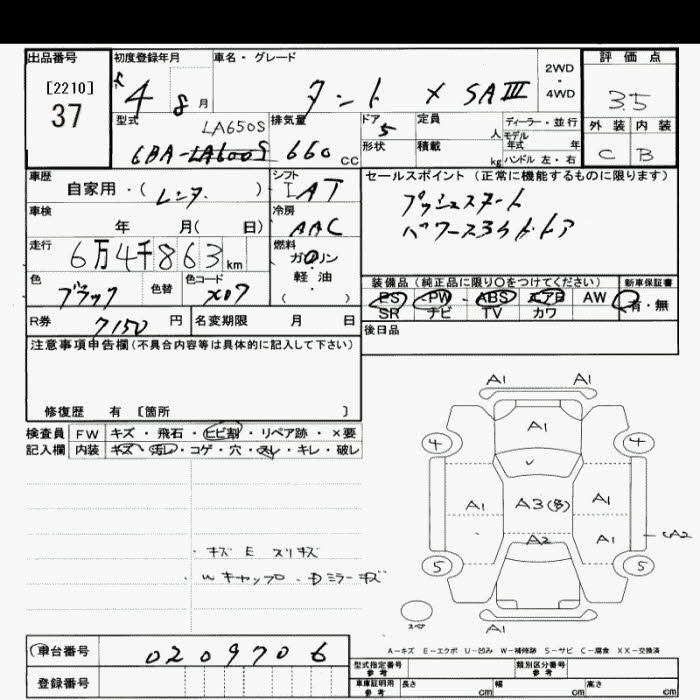 出品番号
[2210]
37
初度登録年月
R 4 8 月
車名・グレード
タント X SAIII
2WD
・
4WD
評価点
3.5
外装 内装
C B
型式
LA650S
6BA-LA600S
排気量
660 CC
ドア 5
形状
定員 人
積載 kg
ディーラー・並行
モデル
年式 年
ハンドル 左・右
車歴
自家用・(レンタ)
シフト
IAT
車検
年 月( 日)
冷房
AAC
走行
6万4千863km
燃料
ガソリン
軽油
( )
色
ブラック
色替
色コード
X07
R券
7150 円
名変期限 月 日
セールスポイント (正常に機能するものに限ります)
プッシュスタート
パワースライドドア
装備品 (純正品に限り○をつけてください)
新車保証書
PS PW ABS エアB AW 有・無
SR ナビ TV カワ
後日品
注意事項申告欄(不具合内容等は具体的に記入して下さい)
修復歴 有 [箇所 ]
検査員 FW キズ・飛石・ヒビ割・リペア跡・×要
記入欄 内装 キズ・汚レ・コゲ・穴・スレ・キレ・破レ
・キズ E スリキズ
・Wキャップ・Dミラーキズ
A1 A1
A1
4 4
A1 A3(多) A1
A2 A1
A2
5 5
スペア
A1
A-キズ E-エクボ U-凹み W-補修跡 S-サビ C-腐食 XX-交換済
車台番号 0209706
登録番号
型式指定番号
参考
類別区分番号
参考
車庫証明用
参考
長さ cm 幅 cm 高さ cm